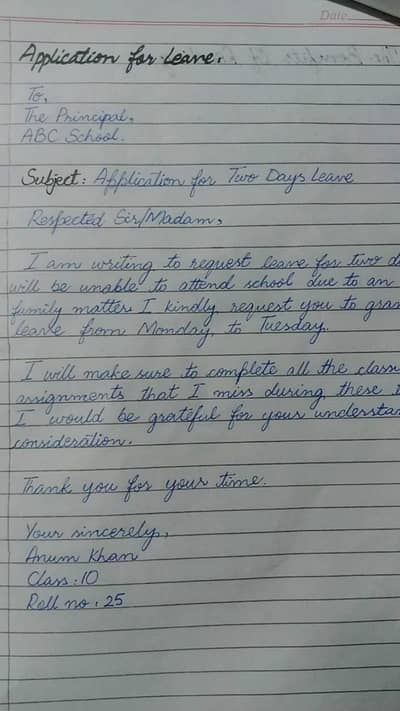 Date
Application for Leave.
To,
The Principal,
ABC School.
Subject: Application for Two Days Leave
Respected Sir/Madam,
I am writing to request leave for two d
will be unable to attend school due to an
family matter. I kindly request you to gran
leave from Monday, to Tuesday.
I will make sure to complete all the class
assignments that I miss during these
I would be grateful for your understan
consideration.
Thank you for your time.
Your sincerely,
Anum Khan
Class : 10
Roll no : 25